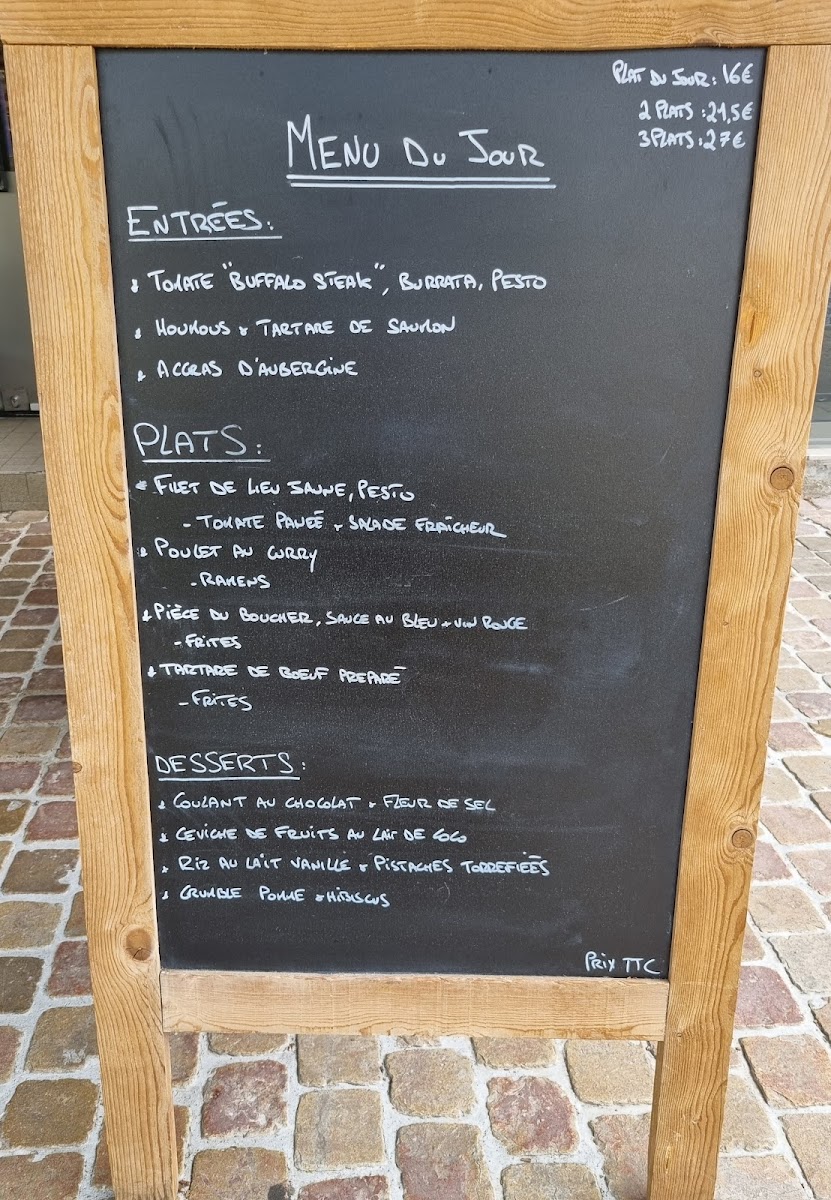 PLAT DU JOUR : 16€
2 PLATS : 21,5€
3 PLATS : 27€
MENU DU JOUR
ENTRÉES :
TOMATE "BUFFALO STEAK", BURRATA, PESTO
HOUMOUS & TARTARE DE SAUMON
ACCRAS D'AUBERGINE
PLATS :
FILET DE LIEU JAUNE, PESTO
- TOMATE PANEÉ & SALADE FRAÎCHEUR
POULET AU CURRY
- RAMENS
PIÈCE DU BOUCHER, SAUCE AU BLEU & VIN ROUGE
- FRITES
TARTARE DE BOEUF PREPARÉ
- FRITES
DESSERTS :
COULANT AU CHOCOLAT & FLEUR DE SEL
CEVICHE DE FRUITS AU LAIT DE COCO
RIZ AU LAIT VANILLE & PISTACHES TORREFIEÉS
CRUMBLE POMME & HIBISCUS
PRIX TTC